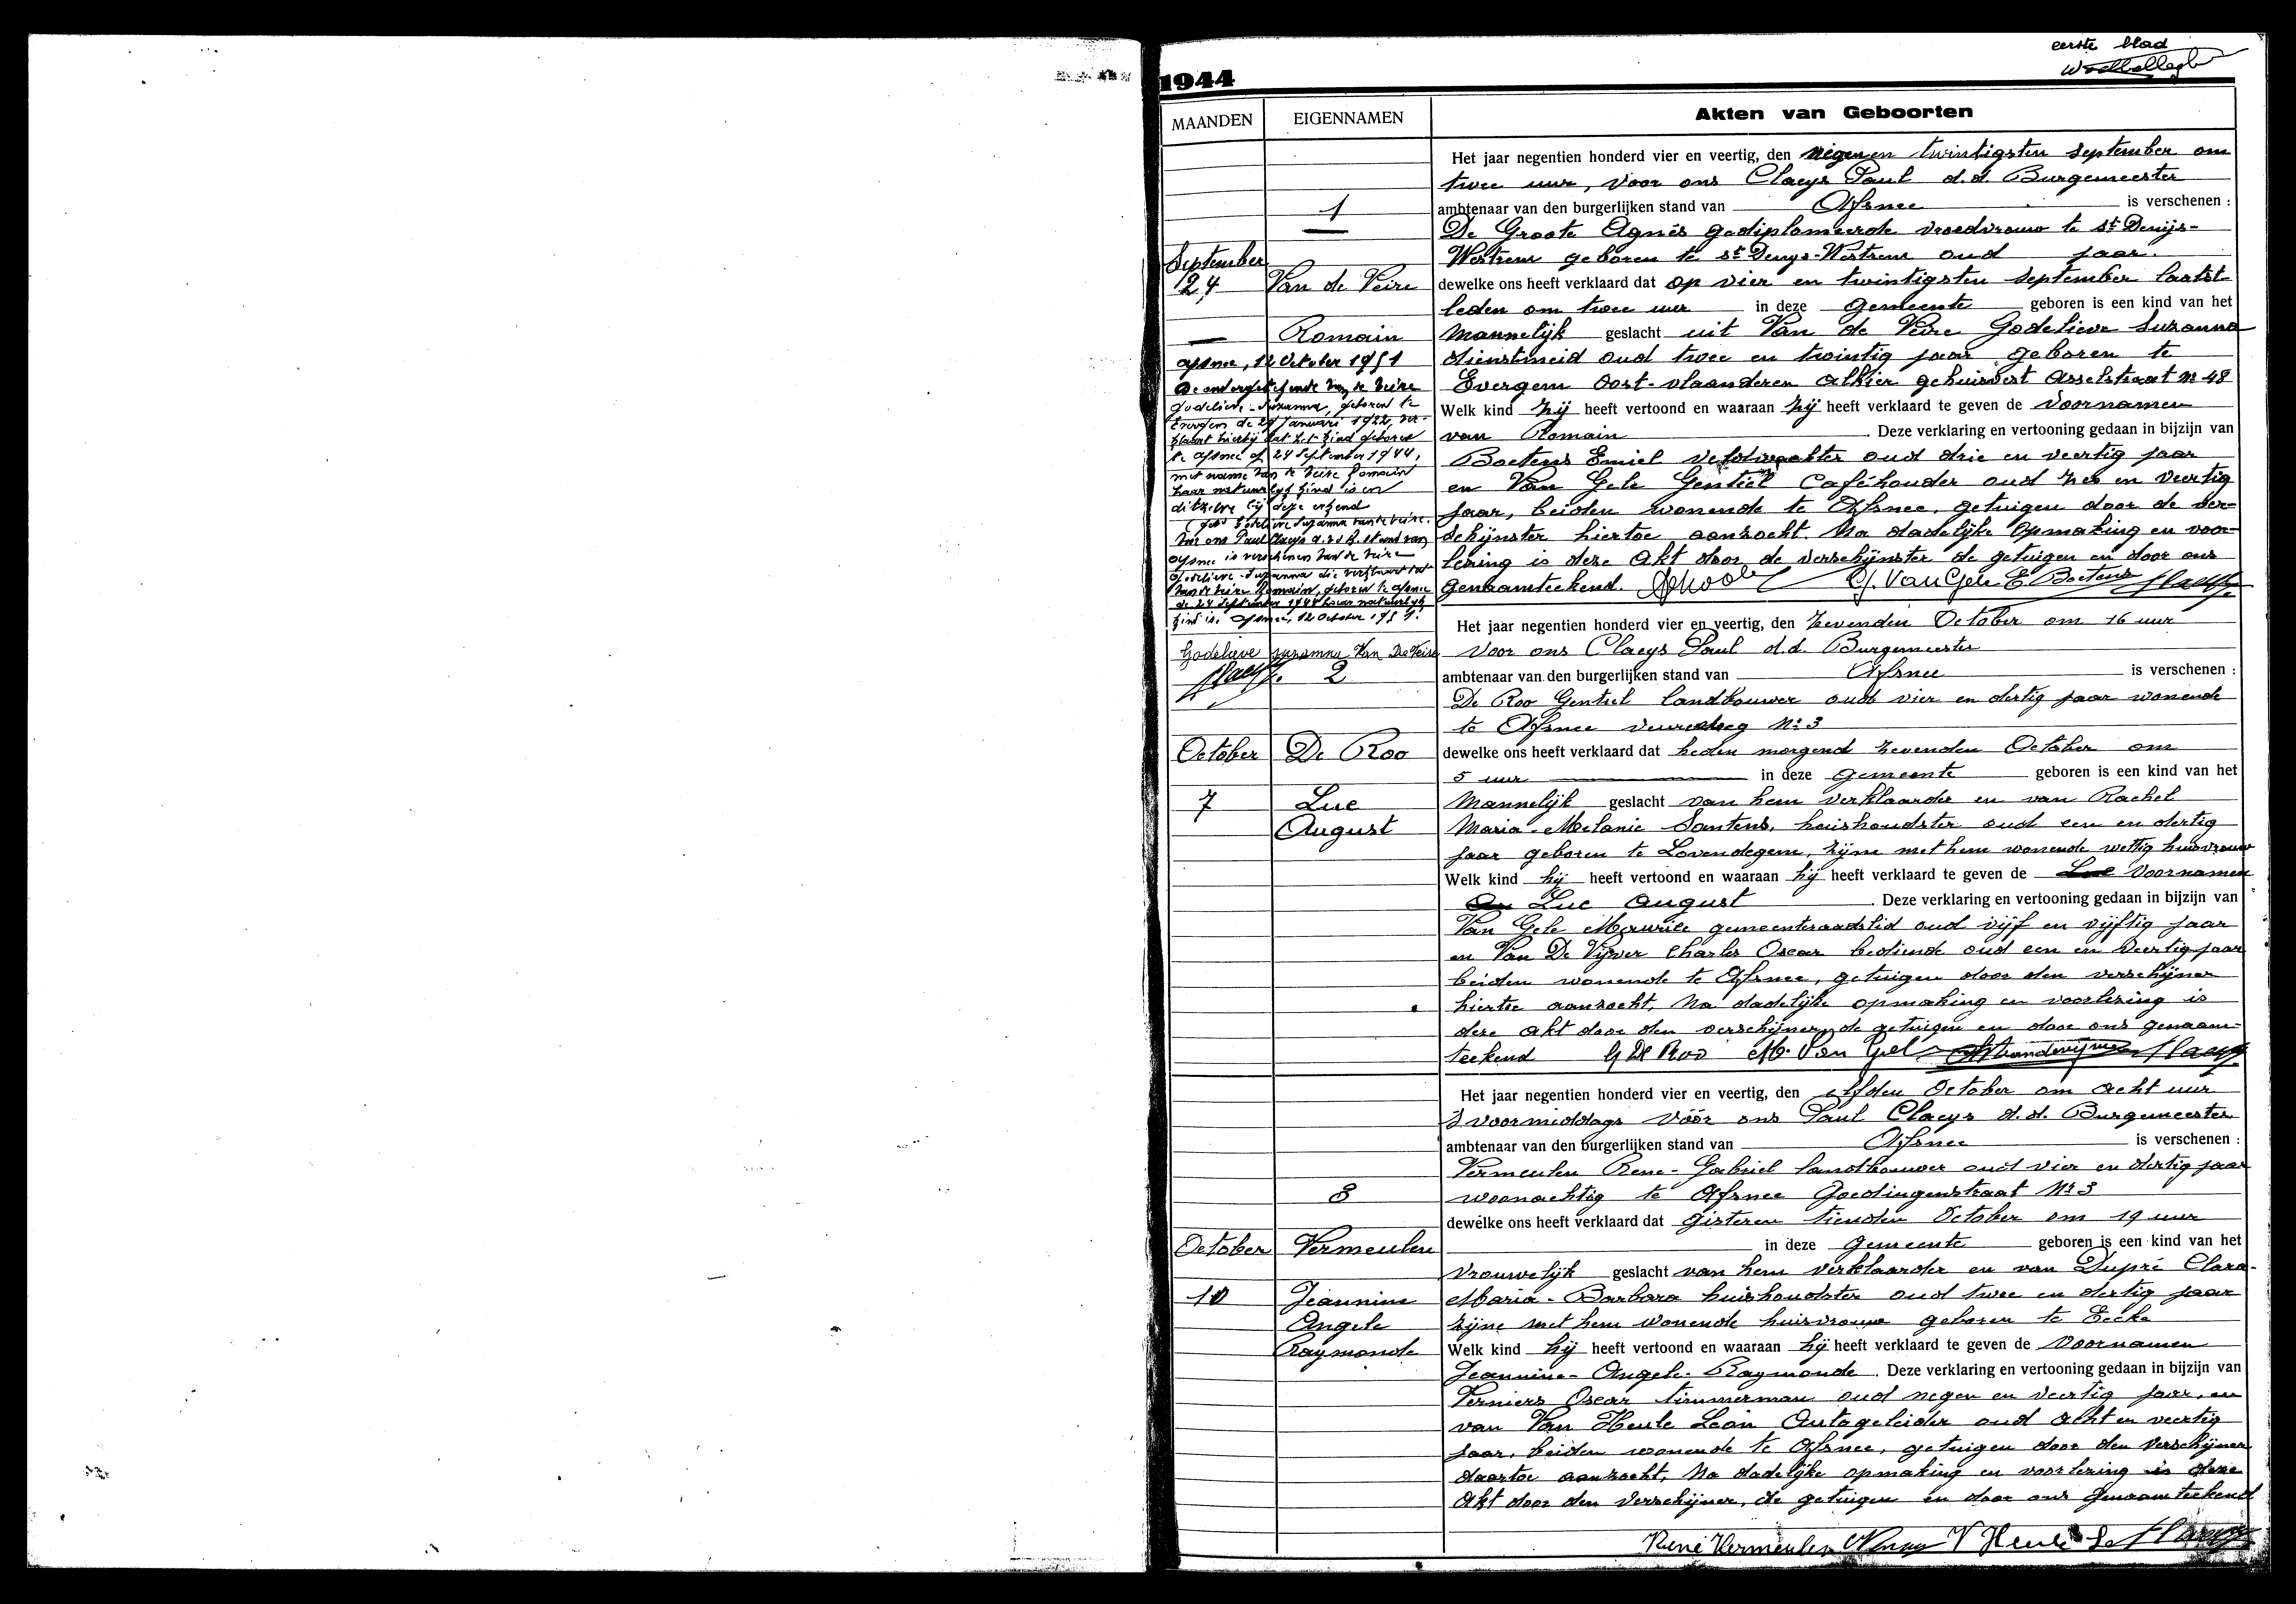 eerste blad
1944
MAANDEN EIGENNAMEN Akten van Geboorten
Het jaar negentien honderd vier en veertig, den negen en twintigsten september om
twee uur, voor ons Claeys Paul d.d. Burgemeester
1
ambtenaar van den burgerlijken stand van Afsnee is verschenen :
De Groote Agnès gediplomeerde vroedvrouw te St Denijs-
Westrem geboren te St Denys-Westrem oud jaar.
September
24 Van de Veire
dewelke ons heeft verklaard dat op vier en twintigsten september laatst
leden om twee uur in deze gemeente geboren is een kind van het
Romain
mannelijk geslacht uit Van de Veire Godelieve Suzanna
dienstmeid oud twee en twintig jaar geboren te
Evergem Oost-vlaanderen alhier gehuisvest Asselstraat nr 48
Welk kind zij heeft vertoond en waaraan zij heeft verklaard te geven de voornamen
van Romain . Deze verklaring en vertooning gedaan in bijzijn van
Boetens Emiel veldwachter oud drie en veertig jaar
en Van Gele Gentiel Caféhouder oud zes en veertig
jaar, beiden wonende te Afsnee, getuigen door de ver-
schijnster hiertoe aanzocht. Na dadelijke opmaking en voor-
lezing is deze akt door de verschijnster de getuigen en door ons
genaamteekend. G. Van Gele E Boetens Claeys
Afsnee, 12 October 1951
De ondergetekende Van de Veire
Godelieve-Suzanna, geboren te
Evergem de 29 Januari 1922, ver-
klaart hierbij dat het kind geboren
te Afsnee op 24 September 1944,
met name Van de Veire Romain
haar natuurlijk kind is en
ditzelve bij deze erkend
(get) Godelieve Suzanna Van de Veire.
Voor ons Paul Claeys a.v.d.B. stand van
Afsnee is verschenen Van de Veire
Godelieve-Suzanna die verklaart dat
Van de Veire Romain, geboren te Afsnee
de 24 September 1944 haar natuurlijk
kind is. Afsnee, 12 October 1951.
Godelieve suzanna Van De Veire
Claeys
Het jaar negentien honderd vier en veertig, den zevenden October om 16 uur
Voor ons Claeys Paul d.d. Burgemeester
2
ambtenaar van den burgerlijken stand van Afsnee is verschenen :
De Roo Gentiel landbouwer oud vier en dertig jaar wonende
te Afsnee Nr 3
October De Roo
dewelke ons heeft verklaard dat heden morgend zevenden October om
5 uur in deze gemeente geboren is een kind van het
7 Luc
August
mannelijk geslacht van hem verklaarder en van Rachel
Maria-Melanie Santens, huishoudster oud een en dertig
jaar geboren te Lovendegem, zijne met hem wonende wettig huisvrouw
Welk kind hij heeft vertoond en waaraan hij heeft verklaard te geven de Luc voornamen
Luc August . Deze verklaring en vertooning gedaan in bijzijn van
Van Gele Maurice gemeenteraadslid oud vijf en vijftig jaar
en Van De Vijver Charles Oscar bediende oud een en veertig jaar
beiden wonende te Afsnee, getuigen door den verschijner
hiertoe aanzocht, Na dadelijke opmaking en voorlezing is
deze akt door den verschijner, de getuigen en door ons genaam-
teekend G De Roo M. Van Gel Vandevijver Claeys
Het jaar negentien honderd vier en veertig, den elfden October om acht uur
's voormiddags vóór ons Paul Claeys d.d. Burgemeester
ambtenaar van den burgerlijken stand van Afsnee is verschenen :
Vermeulen Rene-Gabriel landbouwer oud vier en dertig jaar
3
woonachtig te Afsnee Goedingenstraat Nr 3
dewelke ons heeft verklaard dat gisteren tienden October om 19 uur
October Vermeulen
in deze gemeente geboren is een kind van het
vrouwelijk geslacht van hem verklaarder en van Dupré Clara-
10 Jeannine
Angele
Raymonde
Maria-Barbara huishoudster oud twee en dertig jaar
zijne met hem wonende huisvrouw geboren te Eecke
Welk kind hij heeft vertoond en waaraan hij heeft verklaard te geven de voornamen
Jeannine-Angele-Raymonde . Deze verklaring en vertooning gedaan in bijzijn van
Verniers Oscar timmerman oud negen en veertig jaar, en
van Van Heule Leon Autogeleider oud acht en veertig
jaar, beiden wonende te Afsnee, getuigen door den verschijner
daartoe aanzocht, Na dadelijke opmaking en voorlezing is deze
akt door den verschijner, de getuigen en door ons genaamteekend
René Vermeulen V Heule L Claeys